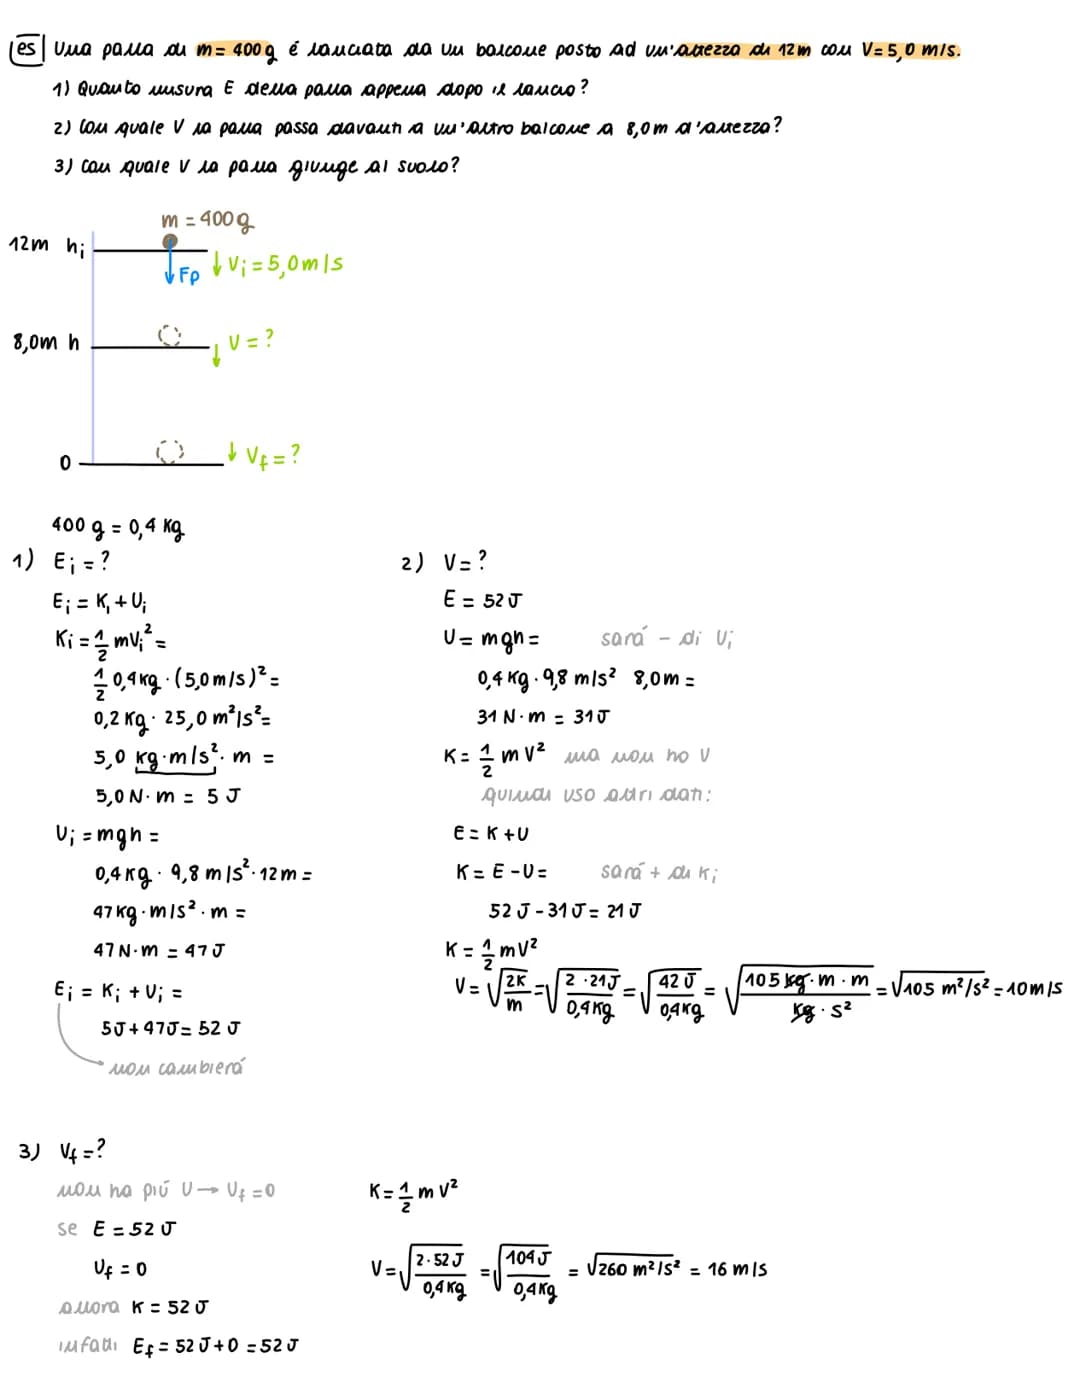 es Una palla di m = 400 g é lanciata da un balcone posto ad un'altezza di 12 m con V = 5,0 m/s.
1) Quanto misura E della palla appena dopo il lancio?
2) Con quale V la palla passa davanti a un'altro balcone a 8,0 m d'altezza?
3) Con quale V la palla giunge al suolo?
m = 400 g
12m hᵢ
Fp
↓ Vᵢ = 5,0 m/s
8,0m h
↓ V = ?
0
↓ Vf = ?
400 g = 0,4 Kg
1) Eᵢ = ?
Eᵢ = Kᵢ + Uᵢ
Kᵢ = 1/2 mVᵢ² =
1/2 0,4 kg · (5,0 m/s)² =
0,2 Kg · 25,0 m²/s² =
5,0 kg · m/s² · m =
5,0 N · m = 5 J
Uᵢ = mgh =
0,4 Kg · 9,8 m/s² · 12 m =
47 Kg · m/s² · m =
47 N · m = 47 J
Eᵢ = Kᵢ + Uᵢ =
5J + 47J = 52 J
non cambierá
2) V = ?
E = 52 J
U = mgh = sará - di Uᵢ
0,4 Kg · 9,8 m/s² 8,0 m =
31 N · m = 31 J
K = 1/2 m V² ma non ho V
quindi uso altri dati:
E = K + U
K = E - U = sará + di Kᵢ
52 J - 31 J = 21 J
K = 1/2 mV²
V = √(2K/m) = √(2 · 21J / 0,4 Kg) = √(42 J / 0,4 Kg) = √(105 kg · m · m / kg · s²) = √105 m²/s² = 10 m/s
3) Vf = ?
non ha piú U → Uf = 0
se E = 52 J
Uf = 0
allora K = 52 J
infatti Ef = 52 J + 0 = 52 J
K = 1/2 m V²
V = √(2 · 52 J / 0,4 Kg) = √(104 J / 0,4 Kg) = √260 m²/s² = 16 m/s